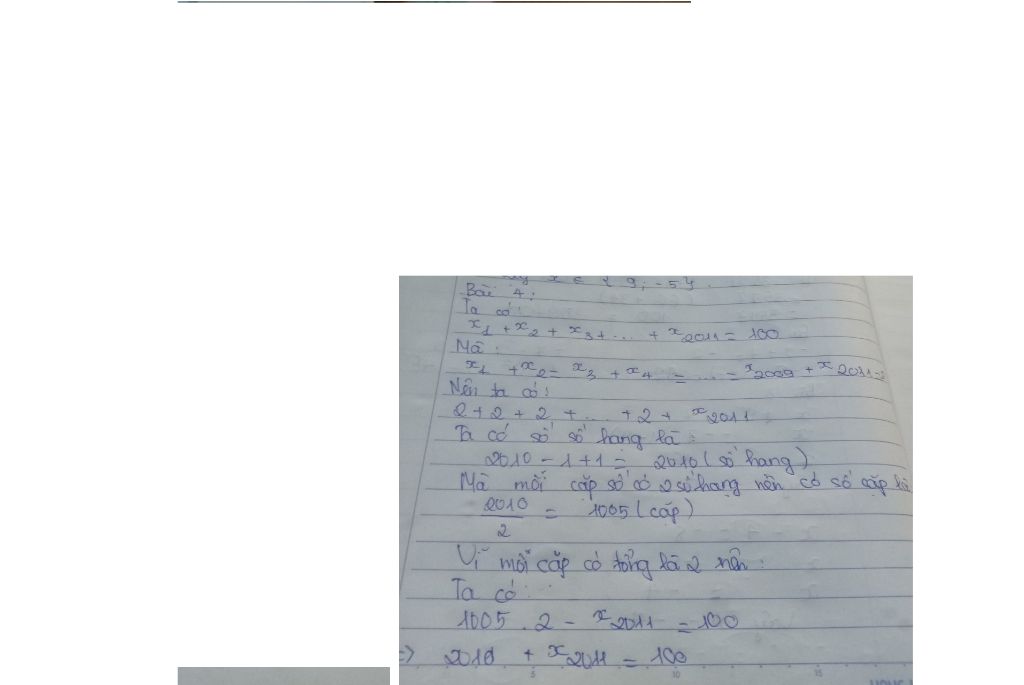 x ∈ { 9; -5}.
Bài 4:
Ta có:
x1 + x2 + x3 + ... + x2011 = 100
Mà:
x1 + x2 = x3 + x4 = ... = x2009 + x2011 = 2
Nên ta có:
2 + 2 + 2 + ... + 2 + x2011
Ta có số số hạng là:
2010 - 1 + 1 = 2010 (số hạng)
Mà mỗi cặp số có 2 số hạng nên có số cặp là
2010/2 = 1005 (cặp)
Vì mỗi cặp có tổng là 2 nên:
Ta có:
1005 . 2 - x2011 = 100
=> 2010 + x2011 = 100
5 10 15